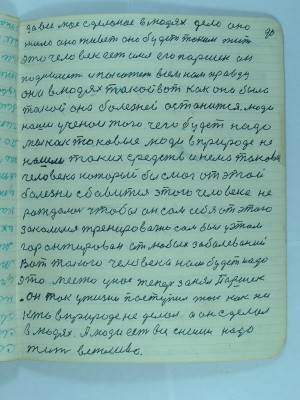 давно мое сделаное в людях дело оно
жило оно живет оно будет таким жить
это человек ест имя его паршек он
поднимет и покажет всем нам правду
они в людях такой вот как она была
такой она болезней останится. люди
наши ученои того чего будет надо
мы как таковые люди в природе не
нашли таких средств и нема такова
человека который бы смог от этой
болезни сбавится этого человека не
рождалом чтобы он сам себя от этого
закалился тренировано сам был у этом
гарантирован от любых заболеваний
Вот такого человека нам будет надо
это место у нас теперь занял Паршек
Он так у жизни поступил так как ни
кто в природе не делал а он сделал
в людях. А люди ест ви с ними надо
жить ветливо.
90